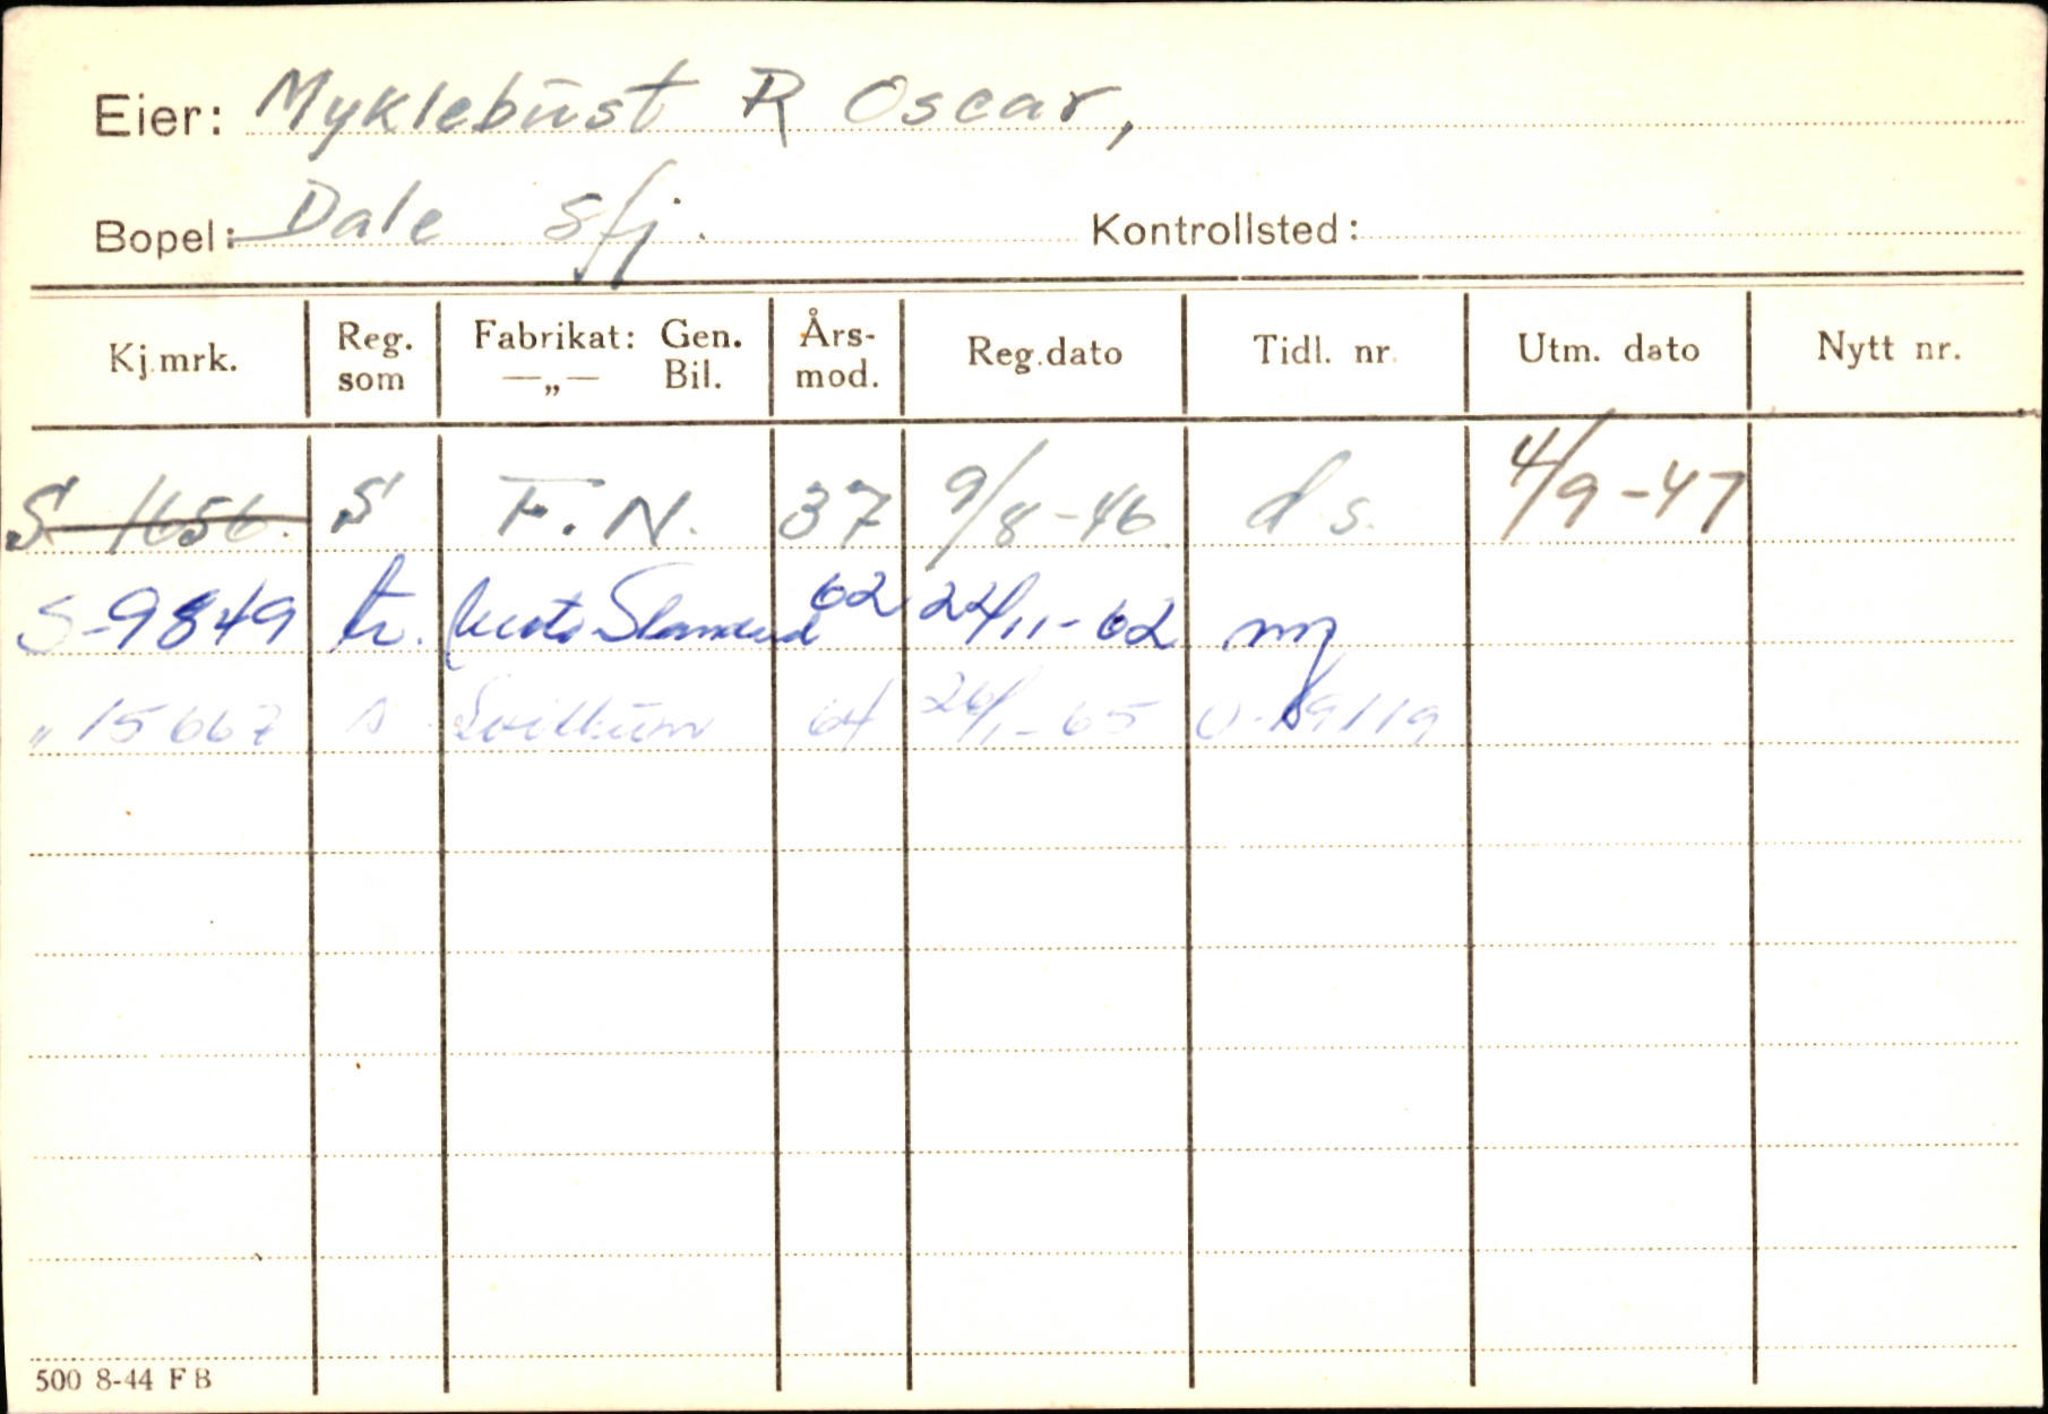 Eier: Myklebust R Oscar,
Bopel: Dale sfj. Kontrollsted:
Kj.mrk. Reg. som Fabrikat: Gen. —„— Bil. Års- mod. Reg.dato Tidl. nr. Utm. dato Nytt nr.
S-1656. S F. N. 37 9/8-46 d s. 4/9-47
S-9849 62 24/11-62 ny
„ 15667 64 26/1-65
500 8-44 F B